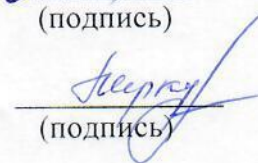 (подпись)
(подпись)